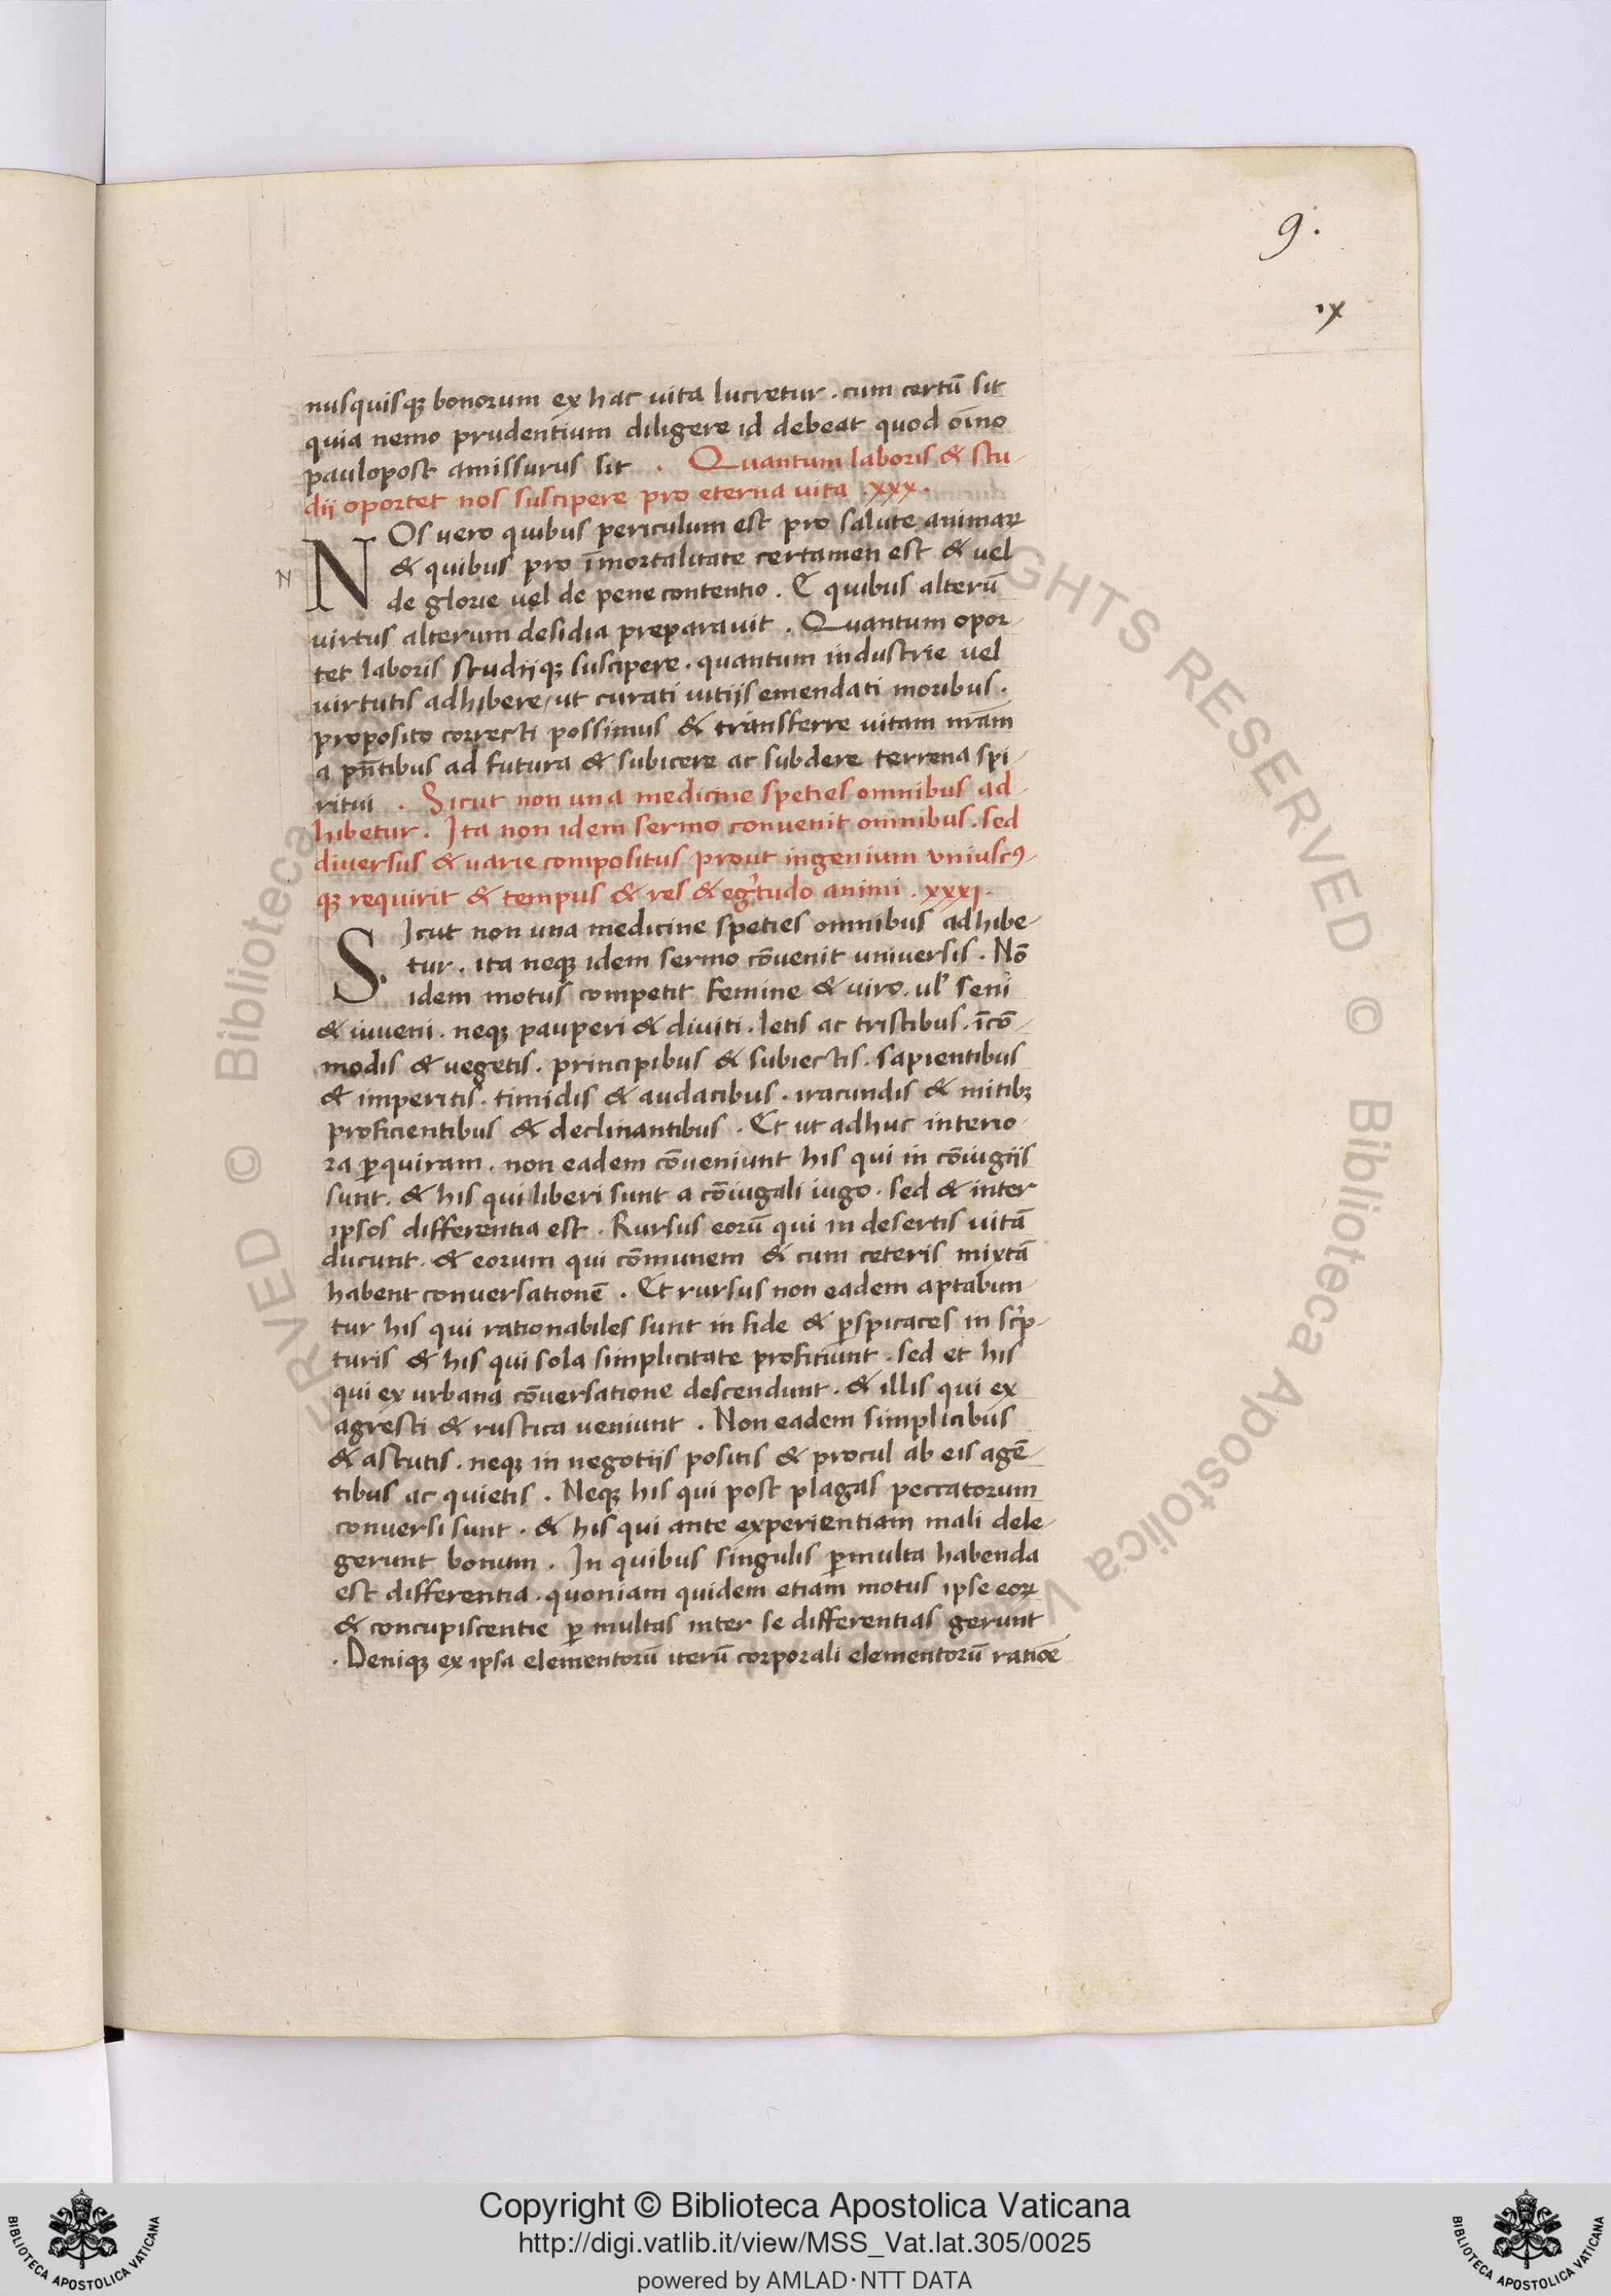 9.
ıx
nusquisqꝫ bonorum ex hac uita lucretur . cum certū sit
quia nemo prudentium diligere id debeat quod oīno
paulopost amissurus sit . Quantum laboris & stu-
dii oportet nos suscipere pro eterna uita .xxx.
N
NOs uero quibus periculum est pro salute animaꝝ
& quibus pro īmortalitate certamen est & uel
de glorie uel de pene contentio . E quibus alterū
uirtus alterum desidia preparauit . Quantum opor-
tet laboris studijqꝫ suscipere . quantum industrie uel
uirtutis adhibere / ut curati uitijs emendati moribus .
proposito correcti possimus & transferre uitam nr̄am
a pn̄tibus ad futura & subicere ac subdere terrena spi-
ritui . Sicut non una medicine speties omnibus ad-
hibetur . Ita non idem sermo conuenit omnibus . sed
diuersus & uarie compositus prout ingenium vniusc9-
qꝫ requirit & tempus & res & egr̓tudo animi . xxxı .
SIcut non una medicine speties omnibus adhibe-
tur . ita neqꝫ idem sermo cōuenit uniuersis . Nō
idem motus competit femine & uiro . ul̓ seni
& iuueni . neqꝫ pauperi & diuiti . letis ac tristibus . īcō-
modis & uegetis . principibus & subiectis . sapientibus
& imperitis . timidis & audacibus . iracundis & mitibꝫ
proficientibus & declinantibus . Et ut adhuc interio-
ra ꝑquiram . non eadem cōueniunt his qui in cōiugiis
sunt . & his qui liberi sunt a cōiugali iugo . sed & inter
ipsos differentia est . Rursus eorū qui in desertis uitā
ducunt . & eorum qui cōmunem & cum ceteris mixtā
habent conuersationē . Et rursus non eadem aptabun-
tur his qui rationabiles sunt in fide & ꝑspicaces in scr̓p-
turis & his qui sola simplicitate profitiunt . sed et his
qui ex urbana cōuersatione descendunt . & illis qui ex
agresti & rustica ueniunt . Non eadem simplicibus
& astutis . neqꝫ in negotijs positis & procul ab eis agē-
tibus ac quietis . Neqꝫ his qui post plagas peccatorum
conuersi sunt . & his qui ante experientiam mali dele-
gerunt bonum . In quibus singulis ꝑmulta habenda
est differentia . quoniam quidem etiam motus ipse eoꝝ
& concupiscentie ꝑ multas inter se differentias gerunt
. Deniqꝫ ex ipsa elementorū iterū corporali elementorū ratiōe
Copyright © Biblioteca Apostolica Vaticana
http://digi.vatlib.it/view/MSS_Vat.lat.305/0025
powered by AMLAD·NTT DATA
BIBLIOTECA APOSTOLICA VATICANA
BIBLIOTECA APOSTOLICA VATICANA